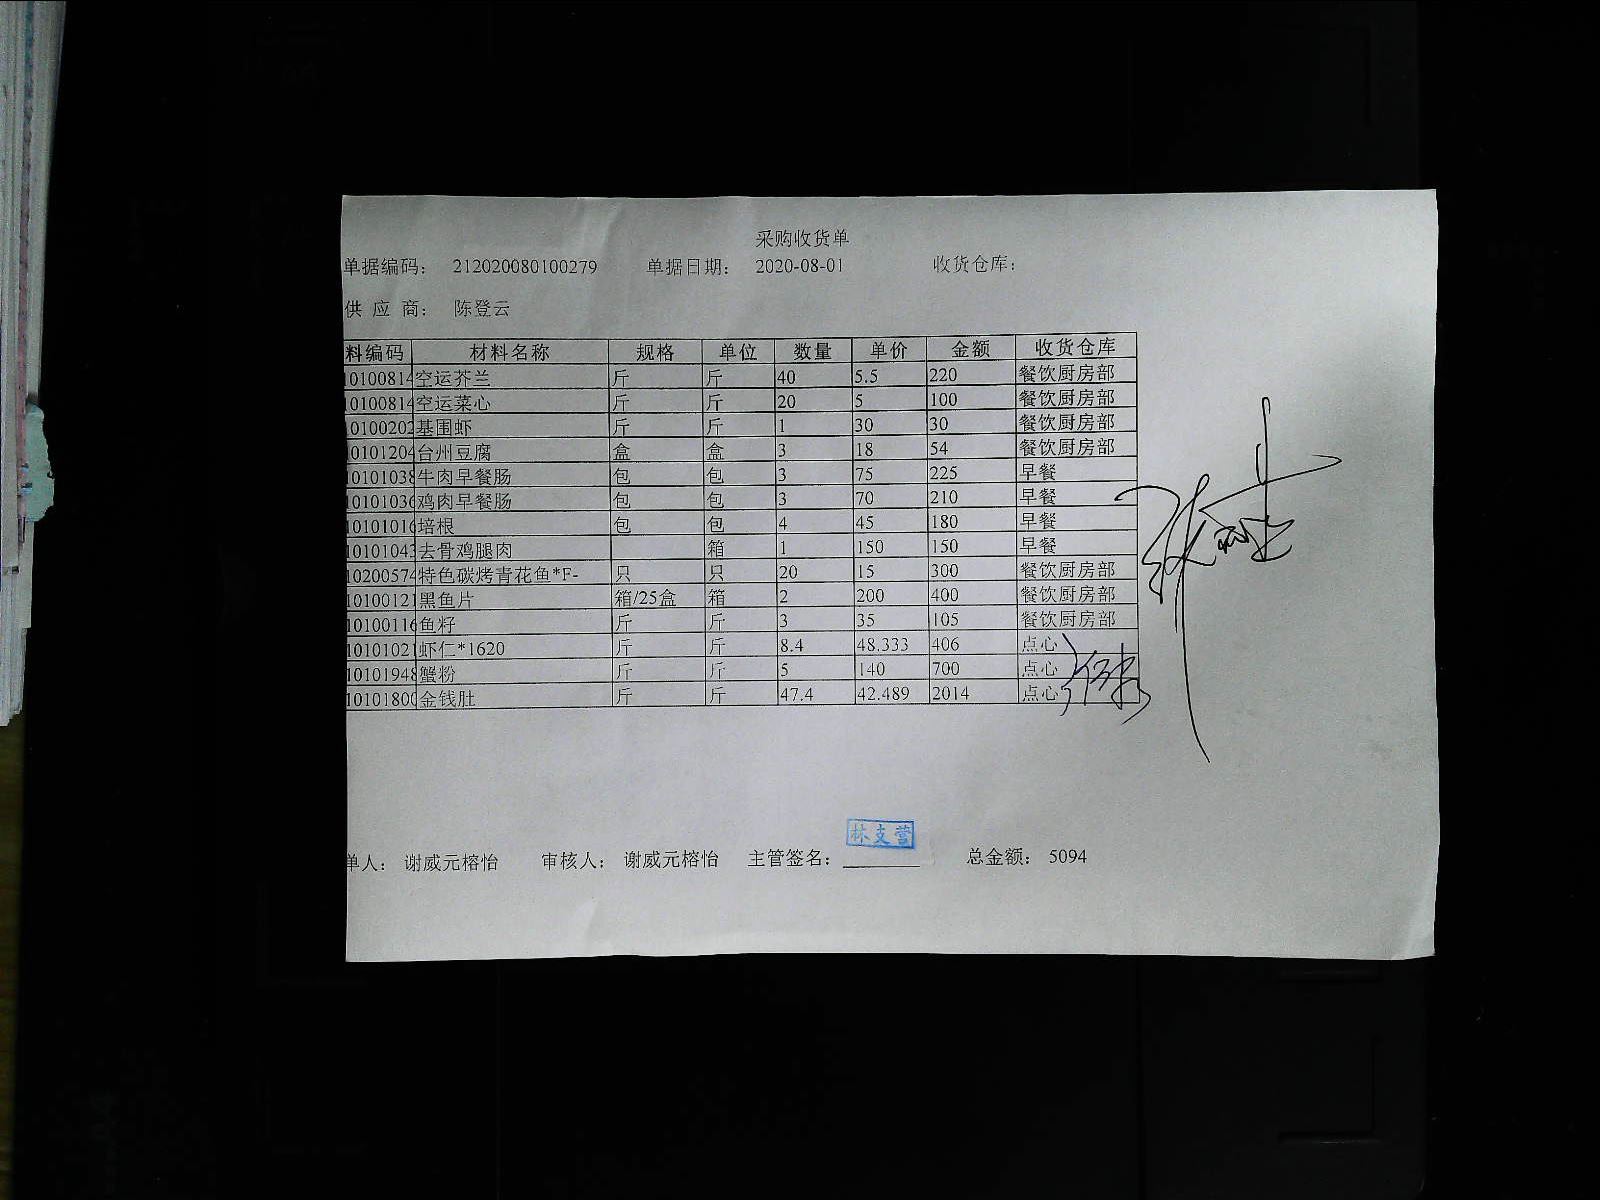 采购收货单
单据编码： 212020080100279 单据日期： 2020-08-01 收货仓库：
供 应 商： 陈登云
料编码 材料名称 规格 单位 数量 单价 金额 收货仓库
10100814 空运芥兰 斤 斤 40 5.5 220 餐饮厨房部
10100814 空运菜心 斤 斤 20 5 100 餐饮厨房部
10100202 基围虾 斤 斤 1 30 30 餐饮厨房部
10101204 台州豆腐 盒 盒 3 18 54 餐饮厨房部
10101038 牛肉早餐肠 包 包 3 75 225 早餐
10101036 鸡肉早餐肠 包 包 3 70 210 早餐
10101016 培根 包 包 4 45 180 早餐
10101043 去骨鸡腿肉 箱 1 150 150 早餐
10200574 特色碳烤青花鱼*F- 只 只 20 15 300 餐饮厨房部
10100121 黑鱼片 箱/25盒 箱 2 200 400 餐饮厨房部
10100116 鱼籽 斤 斤 3 35 105 餐饮厨房部
10101021 虾仁*1620 斤 斤 8.4 48.333 406 点心
10101948 蟹粉 斤 斤 5 140 700 点心
10101800 金钱肚 斤 斤 47.4 42.489 2014 点心
林支营
单人： 谢威元榕怡 审核人： 谢威元榕怡 主管签名： 总金额： 5094